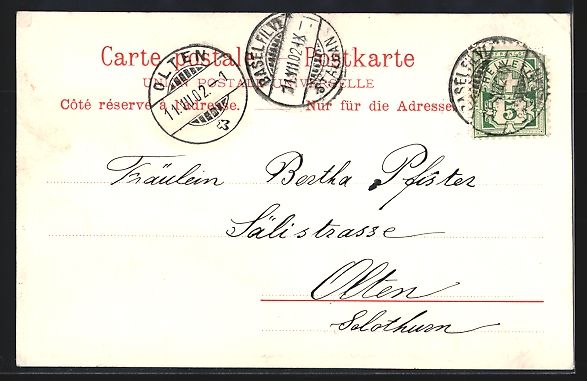 Carte postale. Postkarte
UNION POSTALE UNIVERSELLE
Côté réservé à l'adresse. Nur für die Adresse.
OLTEN
11.VII.02.-1
BASEL FIL. VE
11.VII.02.IX-
HELVETIA
5
Fräulein Bertha Pfister
Sälistrasse
Olten
Solothurn